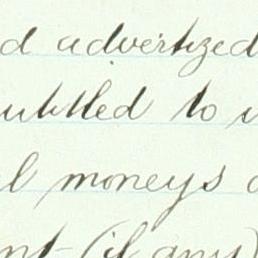 d advertized
ntitled to
l moneys
nt (if any)